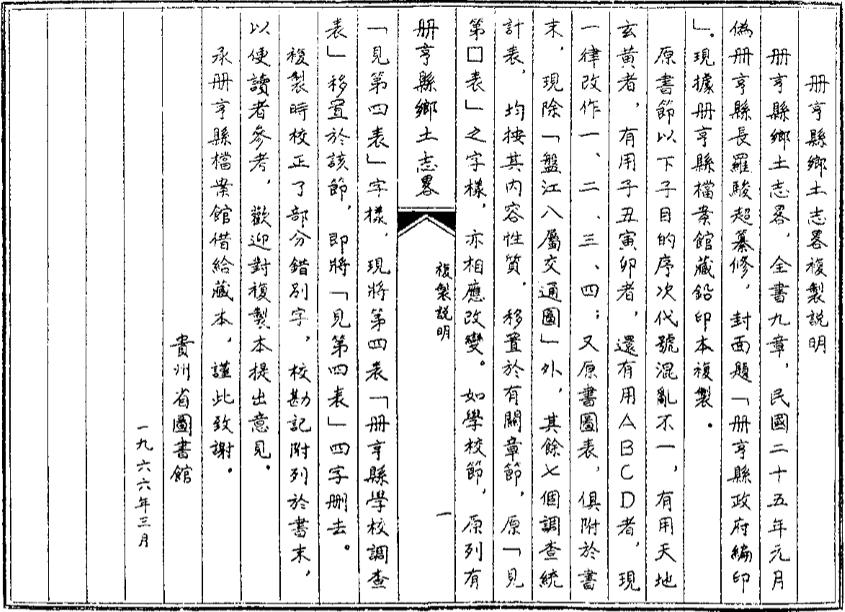 册亨縣鄉土志畧複製説明
册亨縣鄉土志畧，全書九章，民國二十五年元月
偽册亨縣長羅駿超纂修，封面題「册亨縣政府編印
」。現據册亨縣檔案館藏鉛印本複製。
原書節以下子目的序次代號混亂不一，有用天地
玄黃者，有用子丑寅卯者，還有用ABCD者，現
一律改作一、二、三、四；又原書圖表，俱附於書
末，現除「盤江八屬交通圖」外，其餘七個調查統
計表，均按其内容性質，移置於有關章節，原「見
第□表」之字樣，亦相應改變。如學校節，原列有
册亨縣鄉土志畧
複製説明
一
「見第四表」字樣，現將第四表「册亨縣學校調查
表」移置於該節，即將「見第四表」四字删去。
複製時校正了部分錯别字，校勘記附列於書末，
以便讀者參考，歡迎對複製本提出意見。
承册亨縣檔案館借給藏本，謹此致謝。
貴州省圖書館
一九六六年三月